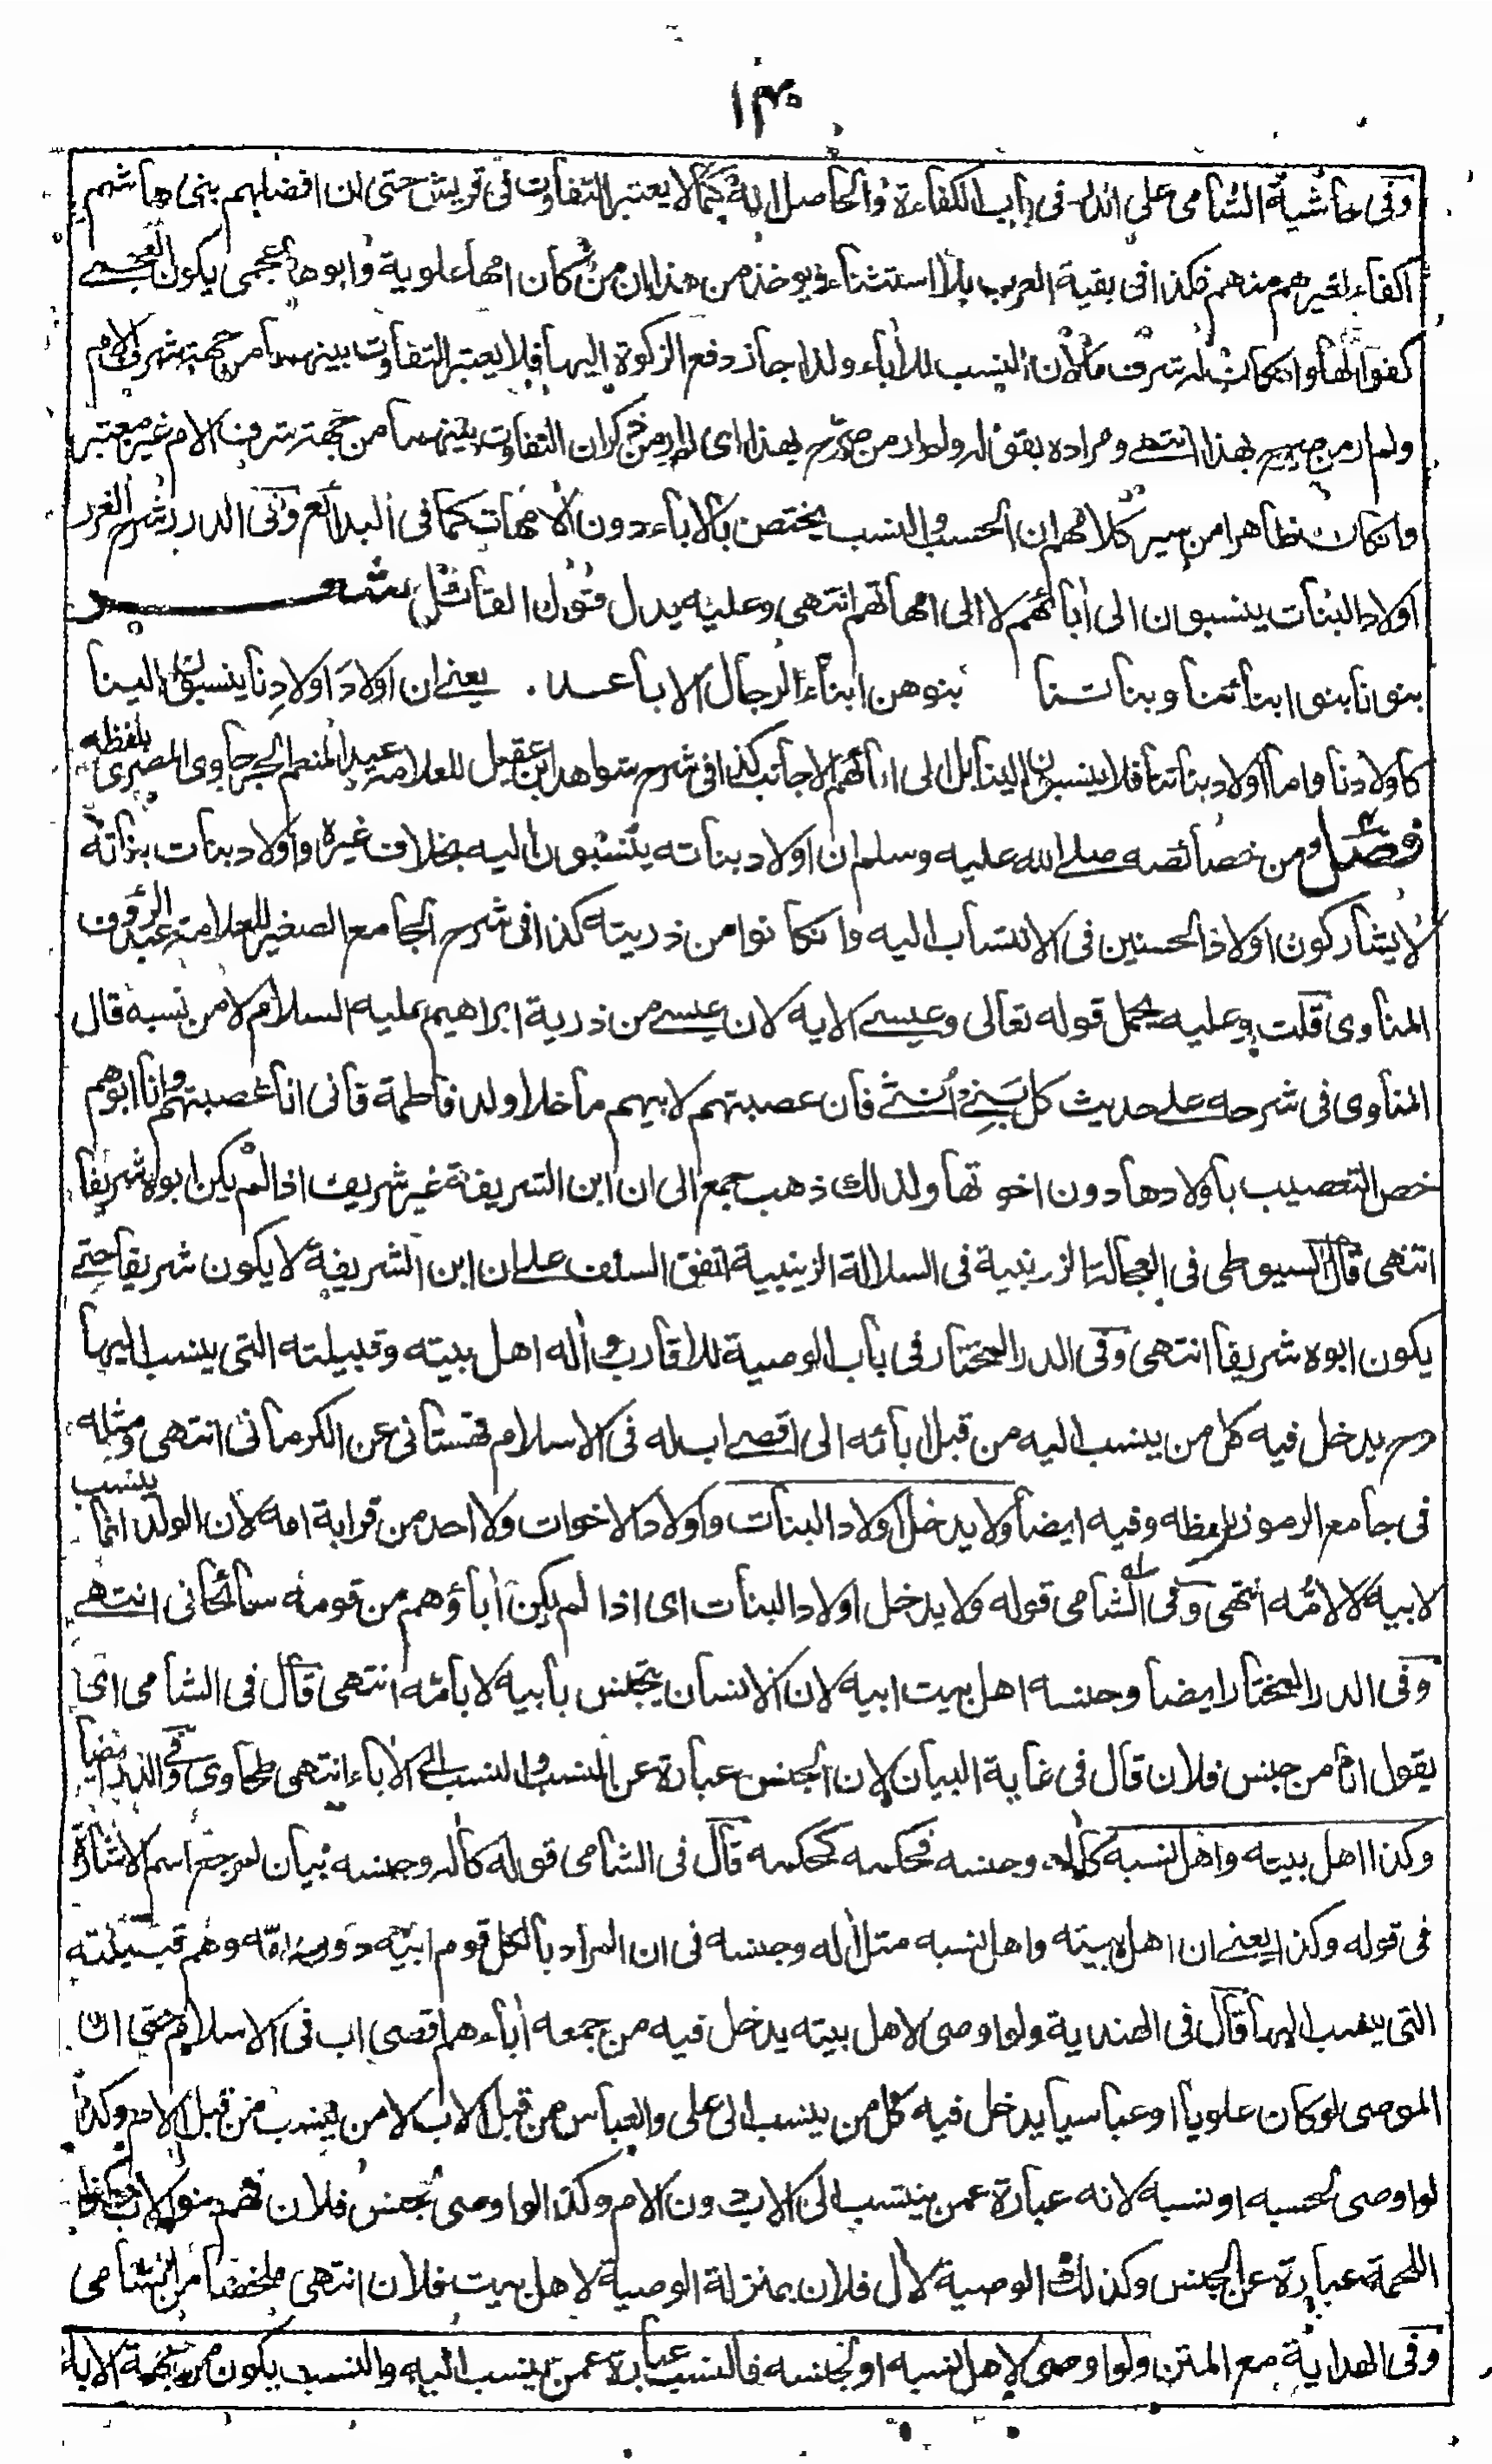 ١٣٠
وفى حاشية الشامى على الدر فى باب الكفاءة والحاصل انه كما لا يعتبر التفاوت فى قريش حتى ان افضلهم بنى هاشم
اكفاء لغيرهم منهم فكذا فى بقية العرب بلا استثناء ويوخذ من هذا ان من كان امها علوية وابوها عجمى يكون العجمى
كفوا لها وان كان لها شرف ما لان النسب للاباء ولذا جاز دفع الزكوة اليها فلا يعتبر التفاوت بينهما من جهة شرف الام
ولم ار من صرح بهذا انتهى ومراده بقوله ولم ار من صرح بهذا اى لم ار من ذكر ان التفاوت بينهما من جهة شرف الام غير معتبر
وان كان ظاهرا من سير كلامهم ان الحسب والنسب يختص بالاباء دون الامهات كما فى البدائع وفى الدرر شرح الغرر
اولاد البنات ينسبون الى أبائهم لا الى امهاتهم انتهى وعليه يدل قول القائل شعر
بنونا بنوا ابنائنا وبناتنا بنوهن ابناء الرجال الاباعد . يعنى ان اولاد اولادنا ينسبون الينا
كاولادنا واما اولاد بناتنا فلا ينسبون الينا بل الى ابائهم الاجانب كذا فى شرح شواهد ابن عقيل للعلامة عبد المنعم الجرجاوى المصرى بلفظه
فصل ومن خصائصه صلى الله عليه وسلم ان اولاد بناته ينسبون اليه بخلاف غيره واولاد بنات بناته
لا يشاركون اولاد الحسنين فى الانتساب اليه وان كانوا من ذريته كذا فى شرح الجامع الصغير للعلامة عبد الرؤف
المناوى قلت وعليه يحمل قوله تعالى وعيسى الاية لان عيسى من ذرية ابراهيم عليه السلام لا من نسبه قال
المناوى فى شرحه على حديث كل بنى أنثى فان عصبتهم لابيهم ما خلا ولد فاطمة فانى انا عصبتهم وانا ابوهم
خص التعصيب باولادها دون اخوتها ولذلك ذهب جمع الى ان ابن الشريفة غير شريف اذا لم يكن ابوه شريفا
انتهى قال السيوطى فى العجالة الزرنبية فى السلالة الزينبية اتفق السلف على ان ابن الشريفة لا يكون شريفا حتى
يكون ابوه شريفا انتهى وفى الدر المختار فى باب الوصية للاقارب وأله اهل بيته وقبيلته التى ينسب اليها
وح يدخل فيه كل من ينسب اليه من قبل ابائه الى اقصى اب له فى الاسلام قهستانى عن الكرمانى انتهى ومثله
فى جامع الرموز بلفظه وفيه ايضا ولا يدخل اولاد البنات واولاد الاخوات ولا احد من قرابة امه لان الولد انما ينسب
لابيه لا لامه انتهى وفى الشامى قوله ولا يدخل اولاد البنات اى اذا لم يكن أباؤهم من قومه سائحانى انتهى
وفى الدر المختار ايضا وجنسه اهل بيت ابيه لان الانسان يتجنس بابيه لا بامه انتهى قال فى الشامى اى
يقول انا من جنس فلان قال فى غاية البيان لان الجنس عبارة عن النسب والنسب الى الاباء انتهى طحاوى وفى الدر ايضا
وكذا اهل بيته واهل نسبه كأله وجنسه فحكمه كحكمه قال فى الشامى قوله كأله وجنسه بيان لمرجع اسم الاشارة
فى قوله وكذا يعنى ان اهل بيته واهل نسبه مثل أله وجنسه فى ان المراد بالكل قوم ابيه دون امه وهم قبيلته
التى ينسب اليها قال فى الهندية ولو اوصى لاهل بيته يدخل فيه من جمعه أباءهم اقصى اب فى الاسلام حتى ان
الموصى لو كان علويا او عباسيا يدخل فيه كل من ينسب الى على والعباس من قبل الاب لا من ينسب من قبل الام وكذا
لو اوصى لحسبه او نسبه لانه عبارة عمن ينتسب الى الاب دون الام وكذا لو اوصى لجنس فلان فهم بنو الاب
اللحمة عبارة عن الجنس وكذلك الوصية لأل فلان بمنزلة الوصية لاهل بيت فلان انتهى ملخصا من الشامى
وفى الهداية مع المتن ولو اوصى لاهل نسبه او لجنسه فالنسب عبارة عمن ينسب اليه والنسب يكون من جهة الاباء